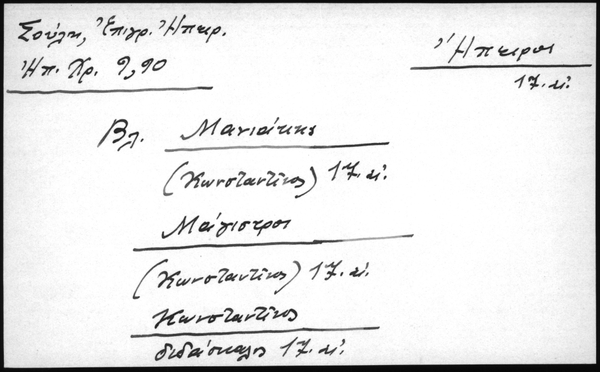 Σούλη, Ἐπιγρ. Ἠπειρ.
Ἠπ. Χρ. 9, 90
Ἤπειρος
17. αἰ.
Βλ. Μανιάκης
(Κωνσταντῖνος) 17. αἰ.
Μάγιστρος
(Κωνσταντῖνος) 17. αἰ.
Κωνσταντῖνος
διδάσκαλος 17. αἰ.